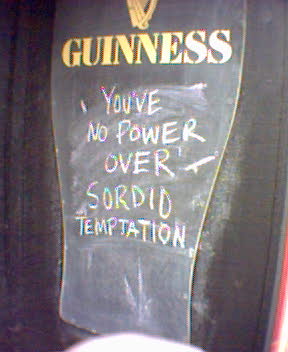 GUINNESS
YOU'VE
NO POWER
OVER
SORDID
TEMPTATION